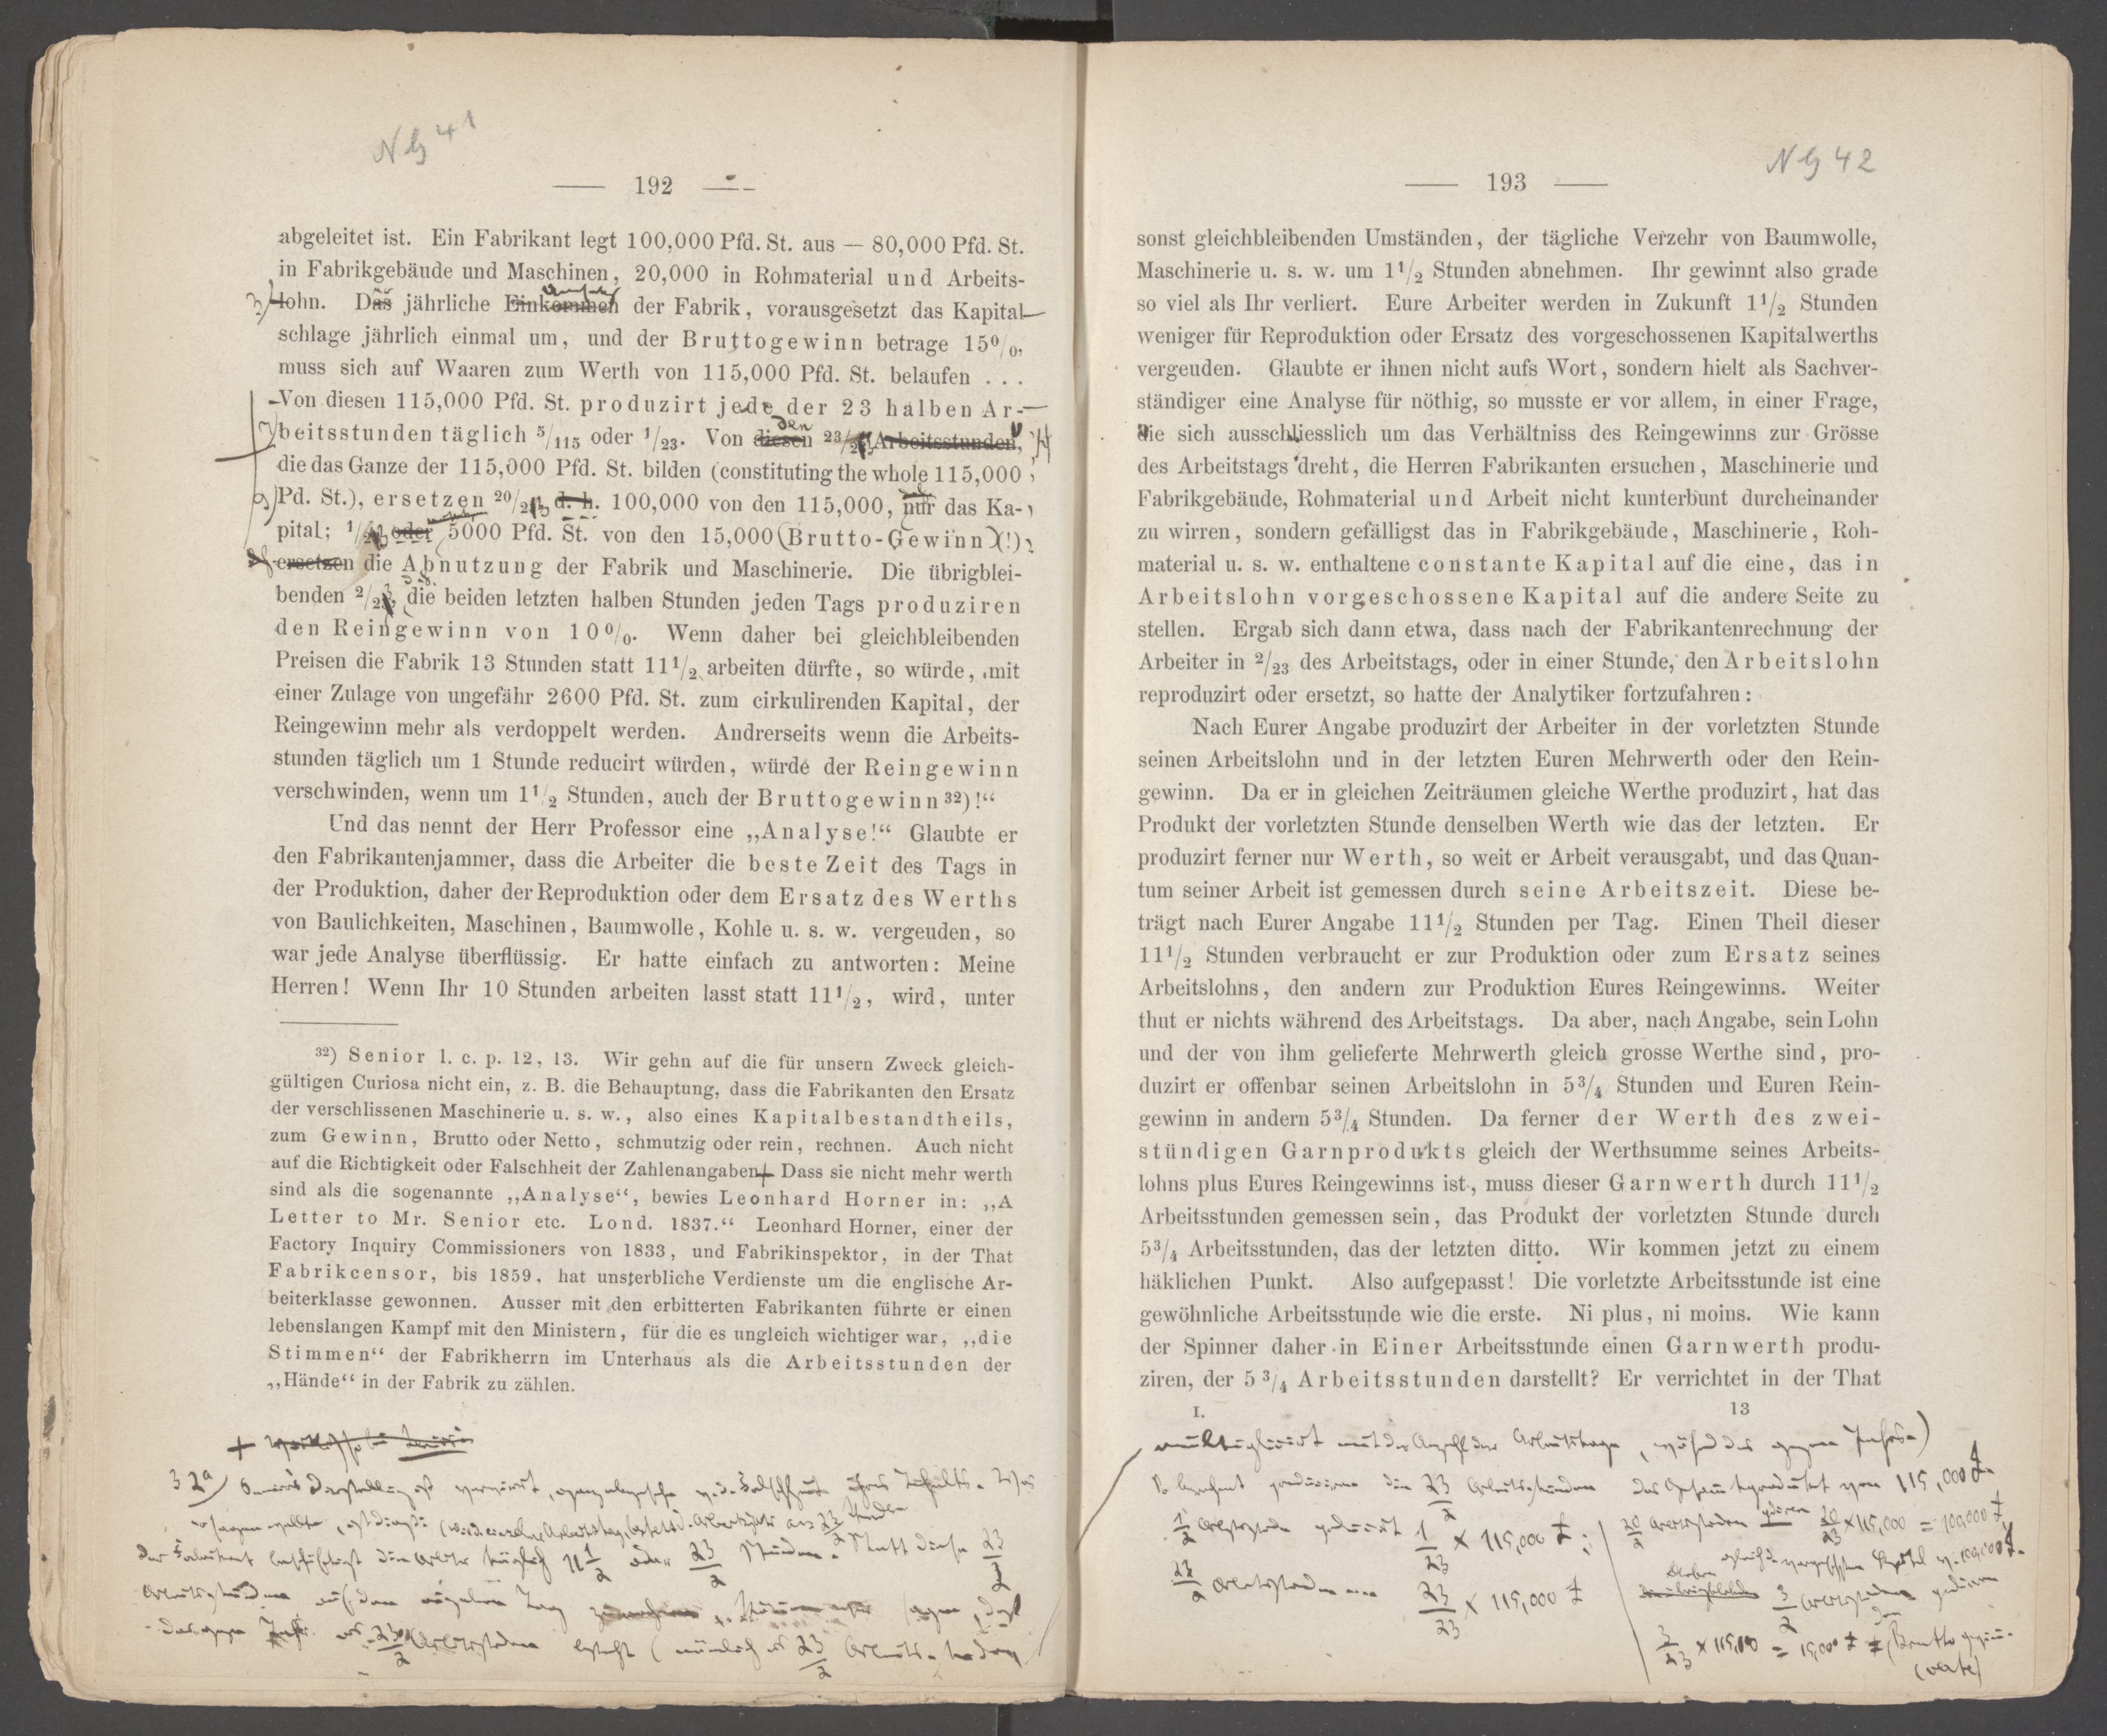 192
abgeleitet ist. Ein Fabrikant legt 100,000 Pfd. St. aus — 80,000 Pfd. St.
in Fabrikgebäude und Maschinen, 20,000 in Rohmaterial und Arbeits-
lohn. Das jährliche Einkommen der Fabrik, vorausgesetzt das Kapital
schlage jährlich einmal um, und der Bruttogewinn betrage 15%,
muss sich auf Waaren zum Werth von 115,000 Pfd. St. belaufen . . .
Von diesen 115,000 Pfd. St. produzirt jede der 23 halben Ar-
den
beitsstunden täglich 5/115 oder 1/23. Von diesen 23/23 Arbeitsstunden,
die das Ganze der 115,000 Pfd. St. bilden (constituting the whole 115,000
Pd. St.), ersetzen 20/23 d. h. 100,000 von den 115,000, nur das Ka-
pital; 1/23 oder 5000 Pfd. St. von den 15,000 (Brutto-Gewinn) (!)
ersetzen die Abnutzung der Fabrik und Maschinerie. Die übrigblei-
benden 2/23, die beiden letzten halben Stunden jeden Tags produziren
den Reingewinn von 10%. Wenn daher bei gleichbleibenden
Preisen die Fabrik 13 Stunden statt 11 1/2 arbeiten dürfte, so würde, mit
einer Zulage von ungefähr 2600 Pfd. St. zum cirkulirenden Kapital, der
Reingewinn mehr als verdoppelt werden. Andrerseits wenn die Arbeits-
stunden täglich um 1 Stunde reducirt würden, würde der Reingewinn
verschwinden, wenn um 1 1/2 Stunden, auch der Bruttogewinn 32)!“
Und das nennt der Herr Professor eine „Analyse!“ Glaubte er
den Fabrikantenjammer, dass die Arbeiter die beste Zeit des Tags in
der Produktion, daher der Reproduktion oder dem Ersatz des Werths
von Baulichkeiten, Maschinen, Baumwolle, Kohle u. s. w. vergeuden, so
war jede Analyse überflüssig. Er hatte einfach zu antworten: Meine
Herren! Wenn Ihr 10 Stunden arbeiten lasst statt 11 1/2, wird, unter
32) Senior l. c. p. 12, 13. Wir gehn auf die für unsern Zweck gleich-
gültigen Curiosa nicht ein, z. B. die Behauptung, dass die Fabrikanten den Ersatz
der verschlissenen Maschinerie u. s. w., also eines Kapitalbestandtheils,
zum Gewinn, Brutto oder Netto, schmutzig oder rein, rechnen. Auch nicht
auf die Richtigkeit oder Falschheit der Zahlenangaben. Dass sie nicht mehr werth
sind als die sogenannte „Analyse“, bewies Leonhard Horner in: „A
Letter to Mr. Senior etc. Lond. 1837.“ Leonhard Horner, einer der
Factory Inquiry Commissioners von 1833, und Fabrikinspektor, in der That
Fabrikcensor, bis 1859, hat unsterbliche Verdienste um die englische Ar-
beiterklasse gewonnen. Ausser mit den erbitterten Fabrikanten führte er einen
lebenslangen Kampf mit den Ministern, für die es ungleich wichtiger war, „die
Stimmen“ der Fabrikherrn im Unterhaus als die Arbeitsstunden der
„Hände“ in der Fabrik zu zählen.
32a)
11 1/2 oder 23/2
N 42
193
sonst gleichbleibenden Umständen, der tägliche Verzehr von Baumwolle,
Maschinerie u. s. w. um 1 1/2 Stunden abnehmen. Ihr gewinnt also grade
so viel als Ihr verliert. Eure Arbeiter werden in Zukunft 1 1/2 Stunden
weniger für Reproduktion oder Ersatz des vorgeschossenen Kapitalwerths
vergeuden. Glaubte er ihnen nicht aufs Wort, sondern hielt als Sachver-
ständiger eine Analyse für nöthig, so musste er vor allem, in einer Frage,
die sich ausschliesslich um das Verhältniss des Reingewinns zur Grösse
des Arbeitstags dreht, die Herren Fabrikanten ersuchen, Maschinerie und
Fabrikgebäude, Rohmaterial und Arbeit nicht kunterbunt durcheinander
zu wirren, sondern gefälligst das in Fabrikgebäude, Maschinerie, Roh-
material u. s. w. enthaltene constante Kapital auf die eine, das in
Arbeitslohn vorgeschossene Kapital auf die andere Seite zu
stellen. Ergab sich dann etwa, dass nach der Fabrikantenrechnung der
Arbeiter in 2/23 des Arbeitstags, oder in einer Stunde, den Arbeitslohn
reproduzirt oder ersetzt, so hatte der Analytiker fortzufahren:
Nach Eurer Angabe produzirt der Arbeiter in der vorletzten Stunde
seinen Arbeitslohn und in der letzten Euren Mehrwerth oder den Rein-
gewinn. Da er in gleichen Zeiträumen gleiche Werthe produzirt, hat das
Produkt der vorletzten Stunde denselben Werth wie das der letzten. Er
produzirt ferner nur Werth, so weit er Arbeit verausgabt, und das Quan-
tum seiner Arbeit ist gemessen durch seine Arbeitszeit. Diese be-
trägt nach Eurer Angabe 11 1/2 Stunden per Tag. Einen Theil dieser
11 1/2 Stunden verbraucht er zur Produktion oder zum Ersatz seines
Arbeitslohns, den andern zur Produktion Eures Reingewinns. Weiter
thut er nichts während des Arbeitstags. Da aber, nach Angabe, sein Lohn
und der von ihm gelieferte Mehrwerth gleich grosse Werthe sind, pro-
duzirt er offenbar seinen Arbeitslohn in 5 3/4 Stunden und Euren Rein-
gewinn in andern 5 3/4 Stunden. Da ferner der Werth des zwei-
stündigen Garnprodukts gleich der Werthsumme seines Arbeits-
lohns plus Eures Reingewinns ist, muss dieser Garnwerth durch 11 1/2
Arbeitsstunden gemessen sein, das Produkt der vorletzten Stunde durch
5 3/4 Arbeitsstunden, das der letzten ditto. Wir kommen jetzt zu einem
häklichen Punkt. Also aufgepasst! Die vorletzte Arbeitsstunde ist eine
gewöhnliche Arbeitsstunde wie die erste. Ni plus, ni moins. Wie kann
der Spinner daher in Einer Arbeitsstunde einen Garnwerth produ-
ziren, der 5 3/4 Arbeitsstunden darstellt? Er verrichtet in der That
I. 13
multiplicirt mit der Anzahl der Arbeitstage
115,000 £
1/23 × 115,000 £; 20/23 × 115,000 = 100,000 £
23/23 × 115,000 £
3/23 × 115,000 = 15,000 £